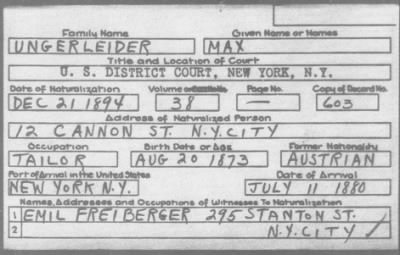 Family Name Given Name or Names
UNGERLEIDER MAX
Title and Location of Court
U. S. DISTRICT COURT, NEW YORK, N.Y.
Date of Naturalization Volume Page No. Copy of Record No.
DEC 21 1894 38 — 603
Address of Naturalized Person
12 CANNON ST. N.Y.CITY
Occupation Birth Date or Age Former Nationality
TAILOR AUG 20 1873 AUSTRIAN
Port of Arrival in the United States Date of Arrival
NEW YORK N.Y. JULY 11 1880
Names, Addresses and Occupations of Witnesses To Naturalization
1 EMIL FREIBERGER 295 STANTON ST.
2 N.Y.CITY